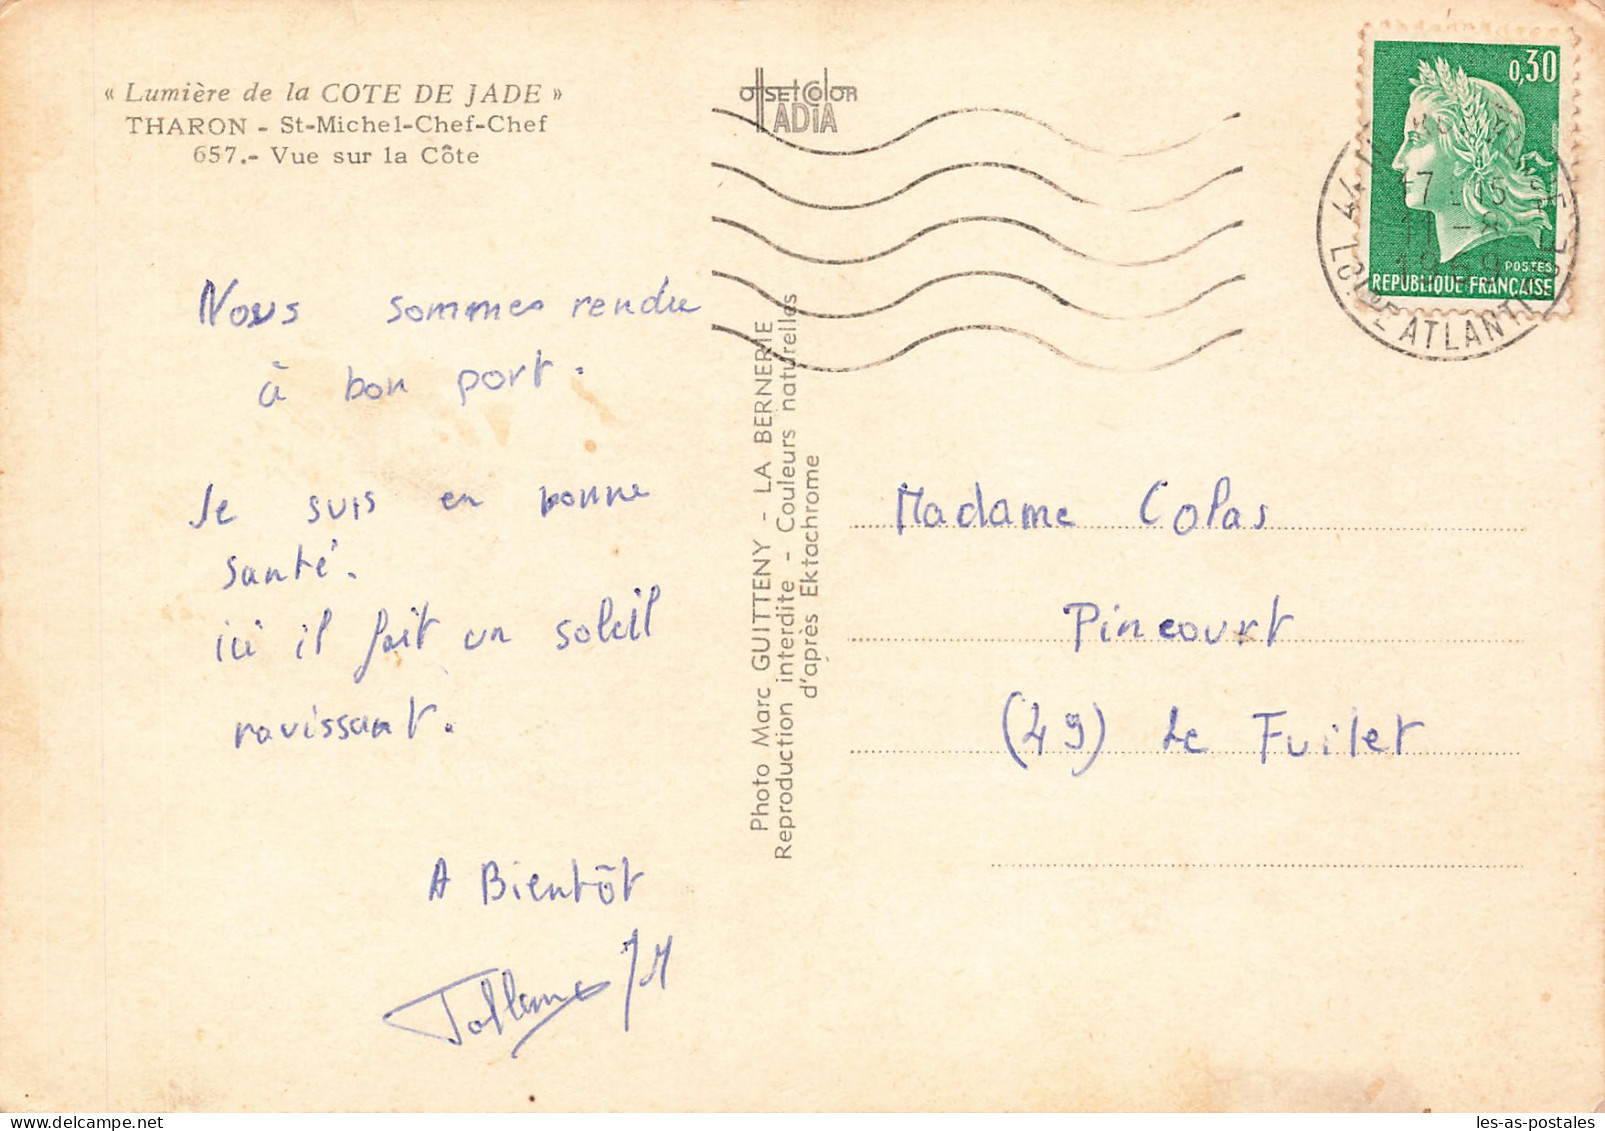 « Lumière de la COTE DE JADE »
THARON - St-Michel-Chef-Chef
657.- Vue sur la Côte
Nous sommes rendu
à bon port.
Je suis en bonne
santé.
ici il fait un soleil
ravissant.
A Bientôt
JM
OffSETCOlOR
IADIA
Photo Marc GUITTENY - LA BERNERIE
Reproduction interdite - Couleurs naturelles
d'après Ektachrome
0,30
POSTES
REPUBLIQUE FRANÇAISE
44
17 - 15
11 - 8
1969
LOIRE ATLANTIQUE
Madame Colas
Pincourt
(49) Le Fuilet
les-as-postales